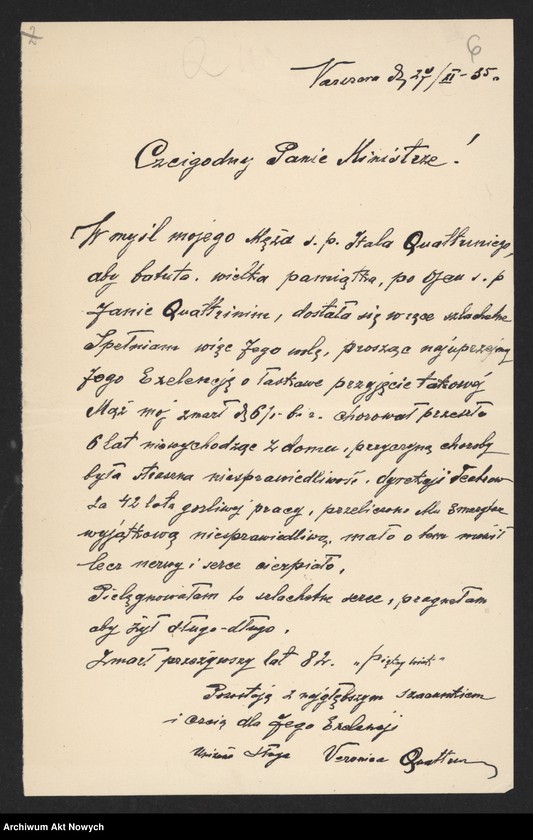 6
Warszawa d. 27/XI - 35 r.
Czcigodny Panie Ministrze!
W myśl mojego Męża ś. p. Itala Quattriniego,
aby batuta, wielka pamiątka, po Ojcu ś. p
Janie Quattrinim, dostała się w ręce szlachetne
Spełniam więc Jego wolę, prosząc najuprzejmiej
Jego Exelencję o łaskawe przyjęcie takowej
Mąż mój zmarł d. 6/ b. r. chorował przeszło
6 lat niewychodząc z domu, przyczyną choroby
była straszna niesprawiedliwość, dyrekcji Teatrów
za 42 lata gorliwej pracy, przeliczono Mu Emeryturę
wyjątkową niesprawiedliwą, mało o tem mówił
lecz nerwy i serce cierpiało,
Pielęgnowałam to szlachetne serce, pragnęłam
aby żył długo-długo,
Zmarł przeżywszy lat 82. „Piękny wiek"
Pozostaję z najgłębszym szacunkiem
i czcią dla Jego Exelencji
Uniżona Sługa Veronica Quattrini
Archiwum Akt Nowych